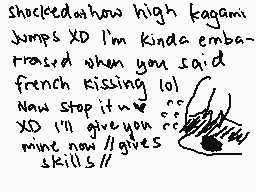 shocked at how high kagami
Jumps XD I'm kinda emba-
rrased when you said
french kissing lol
Naw stop it u ♥
XD I'll give you
mine now // gives
skills //